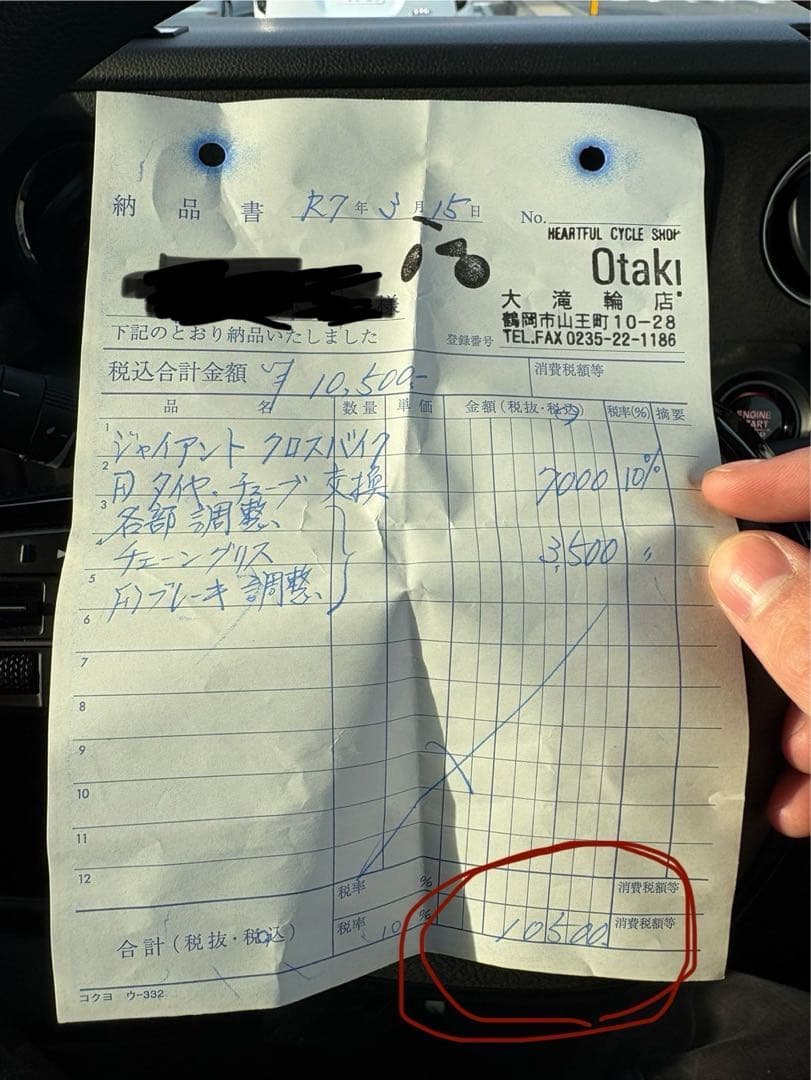 納品書 R7年3月15日 No.
HEARTFUL CYCLE SHOP
Otaki
大滝輪店
鶴岡市山王町10-28
TEL.FAX 0235-22-1186
様
下記のとおり納品いたしました 登録番号
税込合計金額 ¥10,500- 消費税額等
品名 数量 単価 金額(税抜・税込) 税率(%) 摘要
1 ジャイアント クロスバイク
2 F) タイヤ.チューブ 交換 7000 10%
3 各部調整
4 チェーングリス 3,500 〃
5 F)ブレーキ調整
6
7
8
9
10
11
12
税率 % 消費税額等
合計(税抜・税込) 税率 10 % 10500 消費税額等
コクヨ ウ-332
ENGINE
START